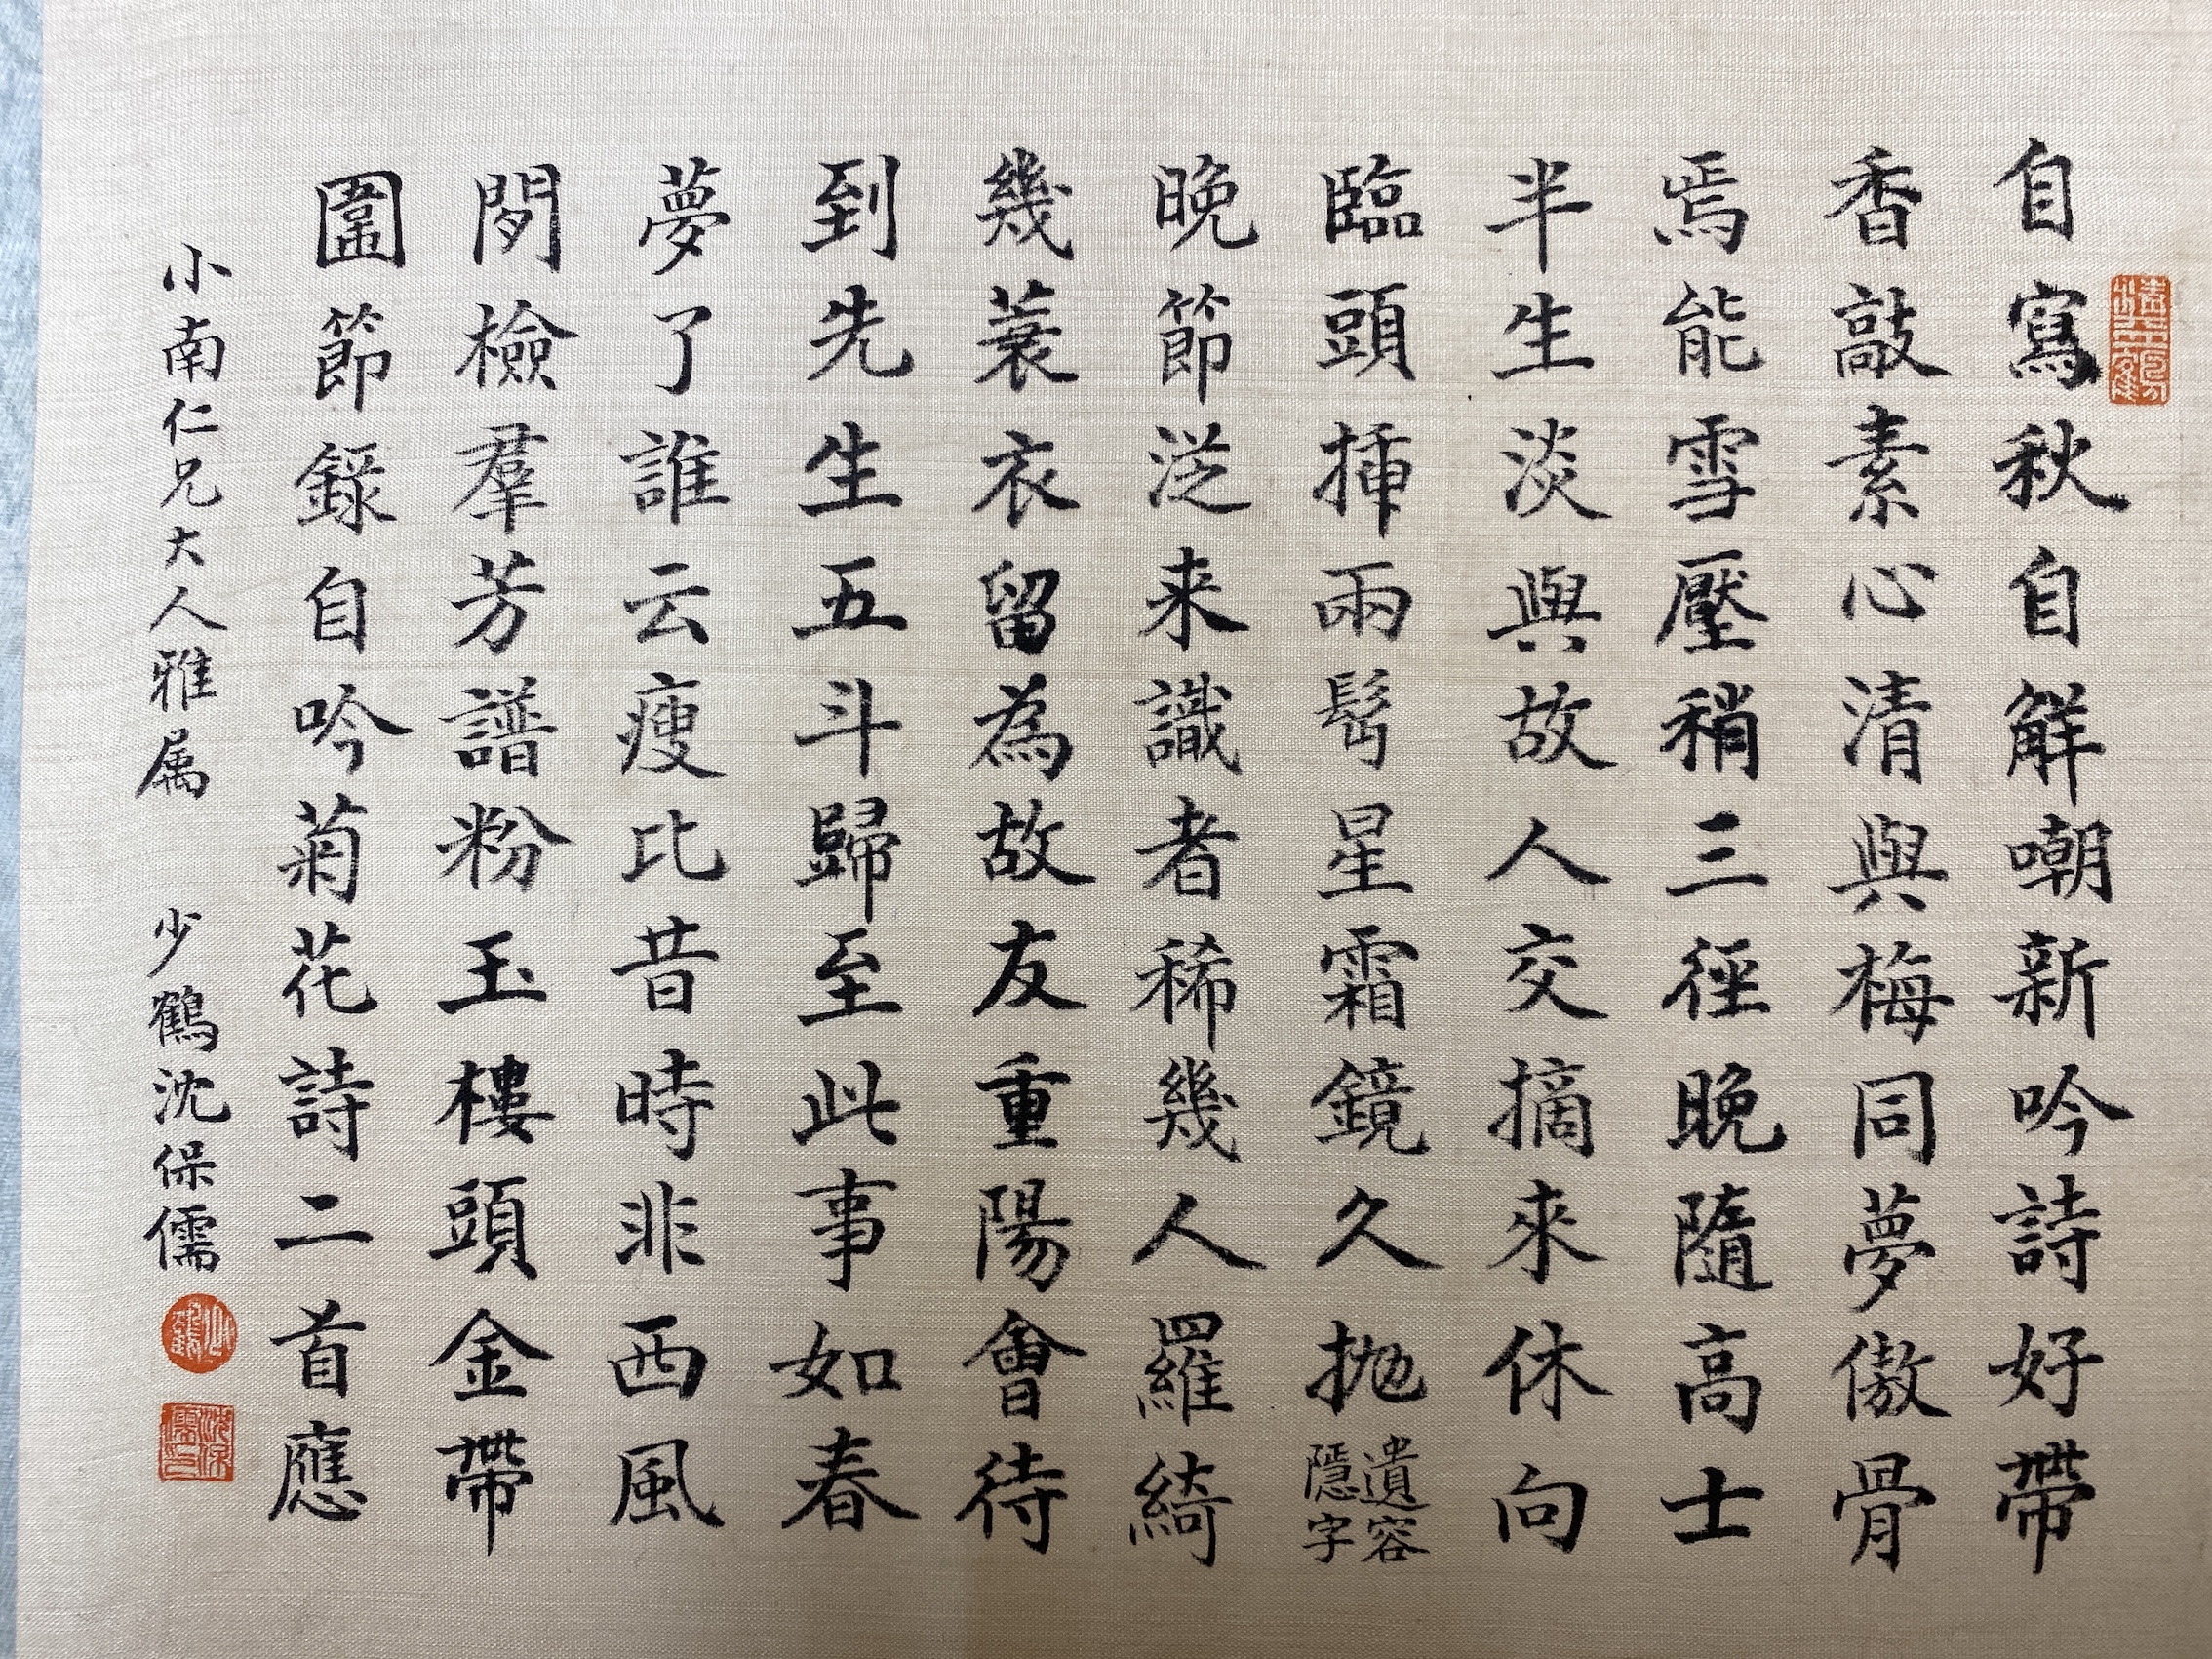 自寫秋自解嘲新吟詩好帶
香敲素心清與梅同夢傲骨
焉能雪壓稍三徑晚隨高士
半生淡與故人交摘來休向
臨頭揷兩髩星霜鏡久抛遺容隱字
晚節泛来識者稀幾人羅綺
幾蓑衣留為故友重陽會待
到先生五斗歸至此事如春
夢了誰云瘦比昔時非西風
閒檢羣芳譜粉玉樓頭金帶
圍節錄自吟菊花詩二首應
小南仁兄大人雅属 少鶴沈保儒
少鶴
沈保儒印